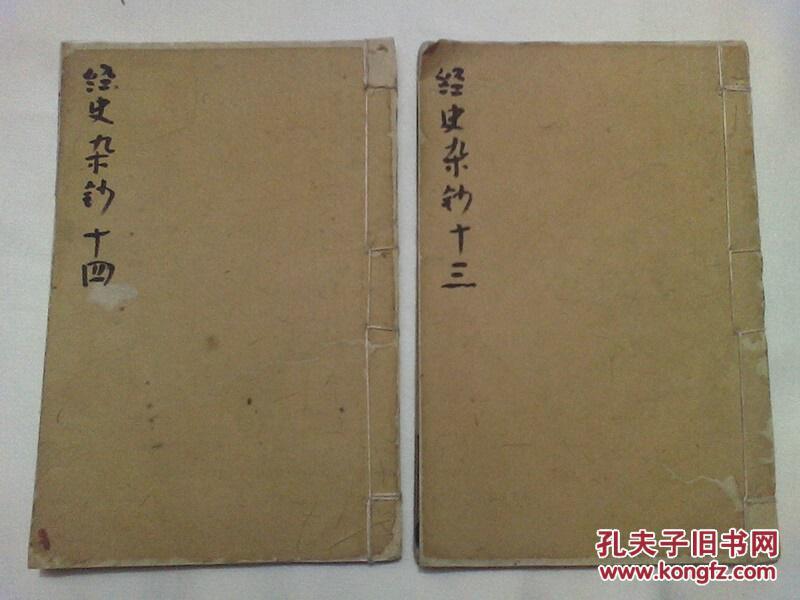 经史杂钞 十四
经史杂钞 十三
孔夫子旧书网
www.kongfz.com